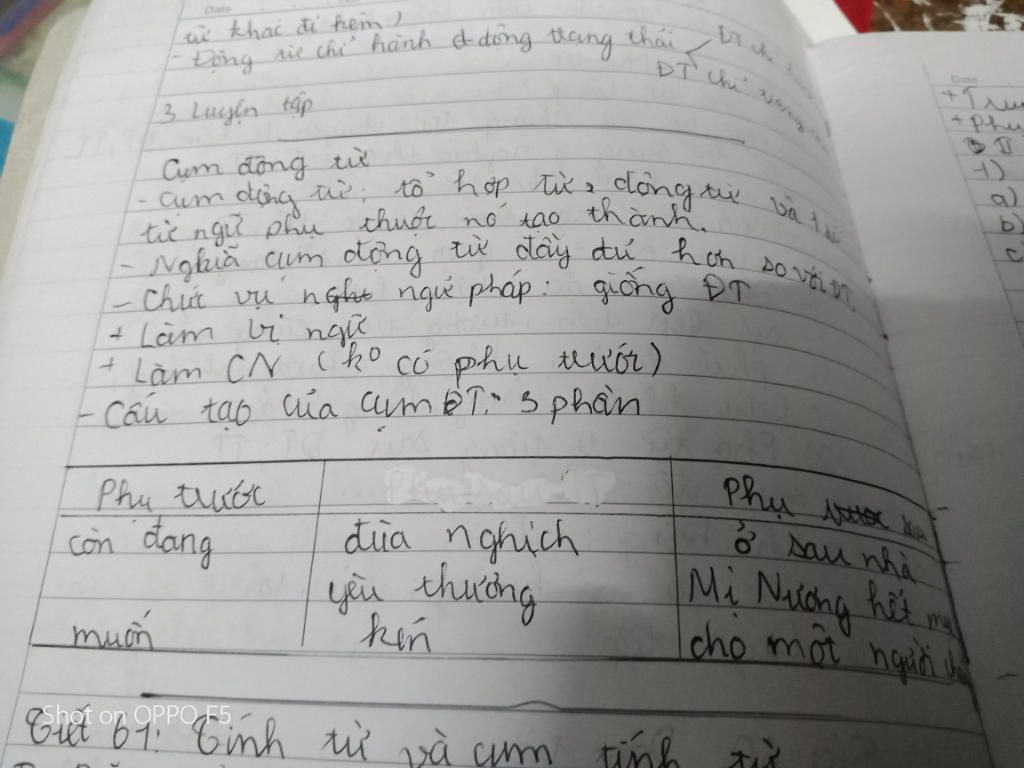 Date
từ khác đi kèm)
- Động từ chỉ hành động trạng thái ĐT chỉ
ĐT chỉ
3 Luyện tập
Cụm động từ
- Cụm động từ: tổ hợp từ, động từ và 1 số
từ ngữ phụ thuộc nó tạo thành.
- Nghĩa cụm động từ đầy đủ hơn so với ĐT
- Chức vụ ngữ pháp: giống ĐT
+ Làm vị ngữ
+ Làm CN (ko có phụ trước)
- Cấu tạo của cụm ĐT: 3 phần
Phụ trước Phụ
còn đang đùa nghịch ở sau nhà
yêu thương Mị Nương hết
muốn kén cho một người
Tiết 61: Tính từ và cụm tính từ
Shot on OPPO F5
Date
+ Phụ
1)
a)
b)
c